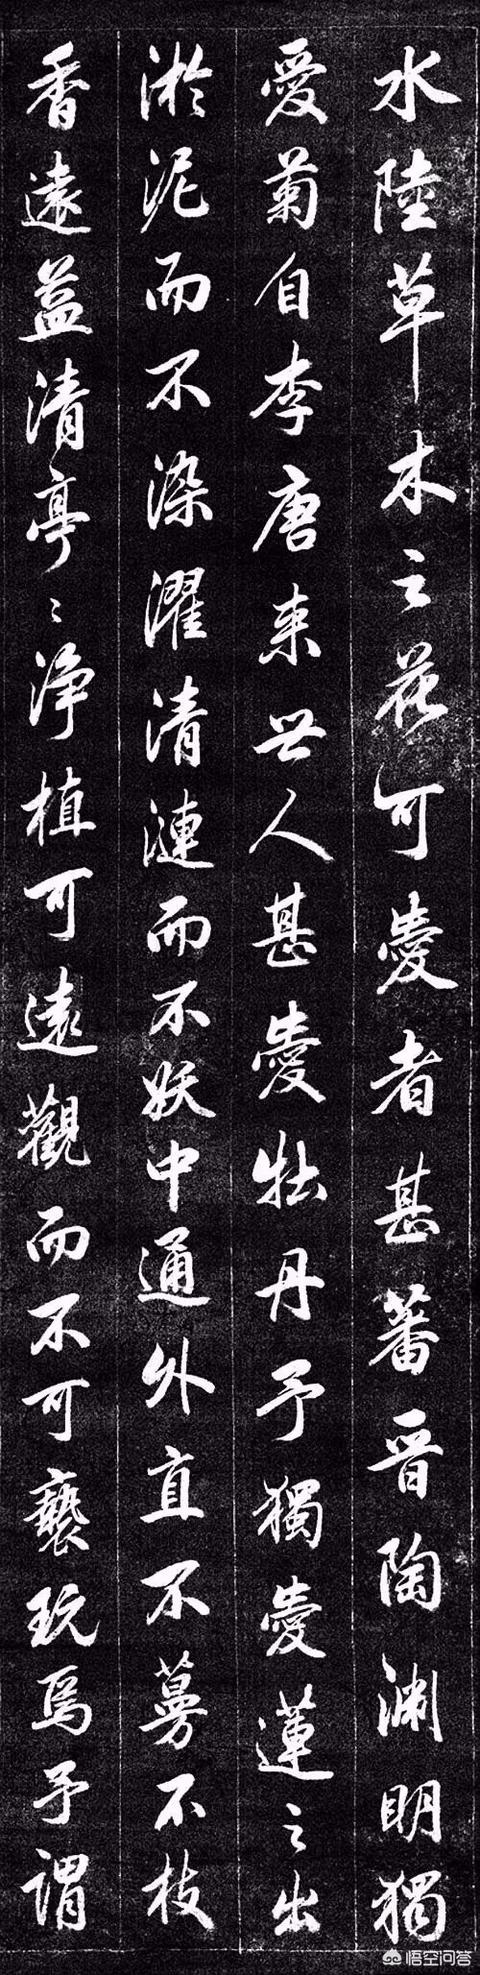 水陸草木之花可愛者甚蕃晉陶淵明獨
愛菊自李唐来世人甚愛牡丹予獨愛蓮之出
淤泥而不染濯清漣而不妖中通外直不蔓不枝
香遠益清亭〻浄植可遠觀而不可褻玩焉予謂
悟空问答